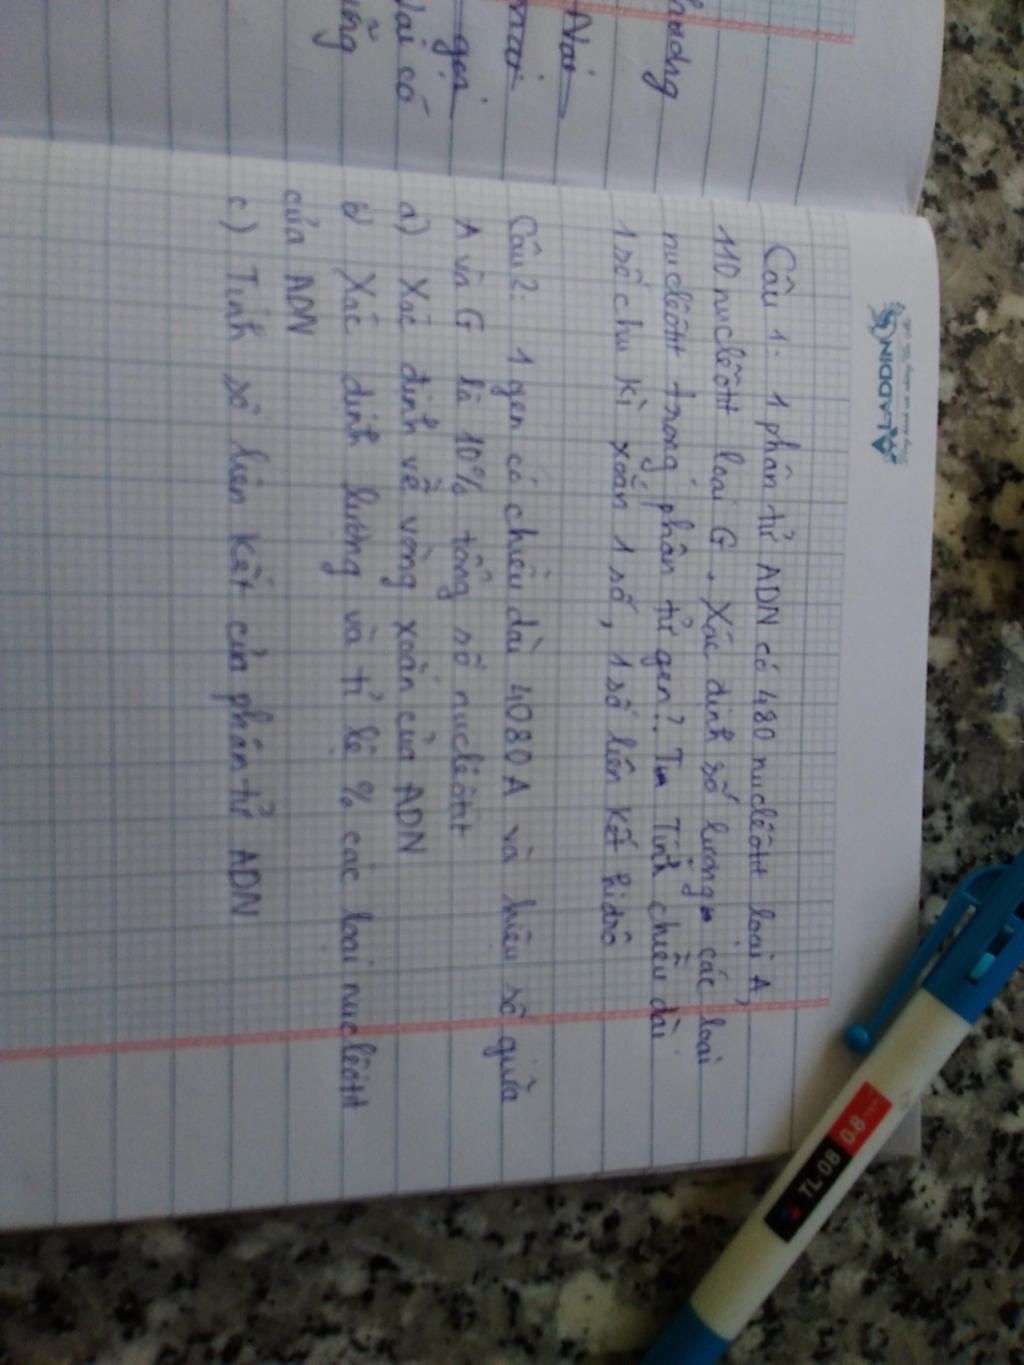 hướng
Nơi
mới
gen
Nái có
ứng
ALADDIN
Câu 1: 1 phân tử ADN có 480 nuclêôtit loại A,
110 nuclêôtit loại G. Xác định số lượng các loại
nuclêôtit trong phân tử gen? Tính chiều dài
1 số chu kì xoắn 1 số, 1 số liên kết hiđrô
Câu 2: 1 gen có chiều dài 4080A và hiệu số giữa
A và G là 10% tổng số nuclêôtit
a) Xác định về vòng xoắn của ADN
b) Xác định lượng và tỉ lệ % các loại nuclêôtit
của ADN
c) Tính số liên kết của phân tử ADN
TL 08 0.8